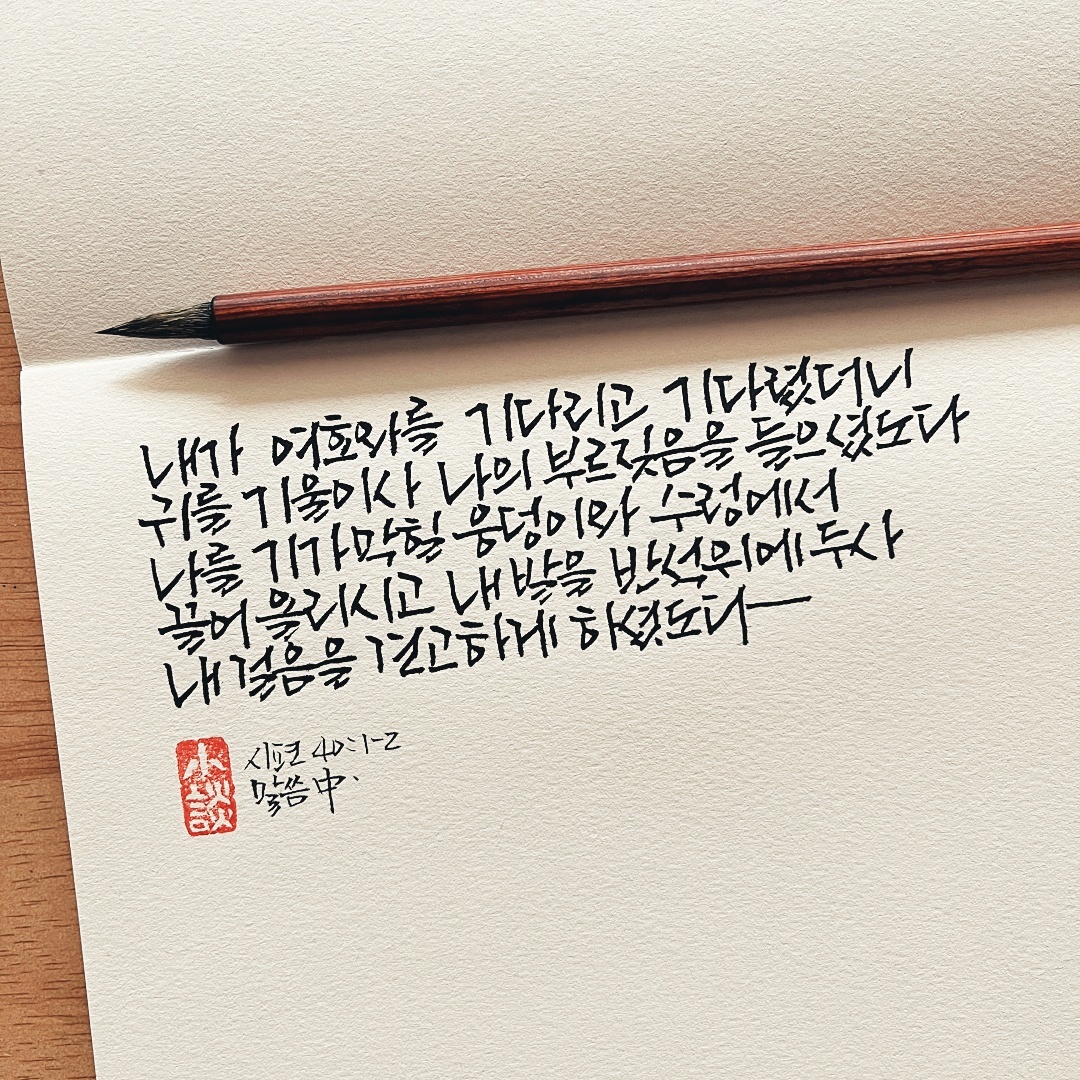 내가 여호와를 기다리고 기다렸더니
귀를 기울이사 나의 부르짖음을 들으셨도다
나를 기가막힐 웅덩이와 수렁에서
끌어 올리시고 내 발을 반석위에 두사
내 걸음을 견고하게 하셨도다
시편 40:1-2
말씀 中.
小談